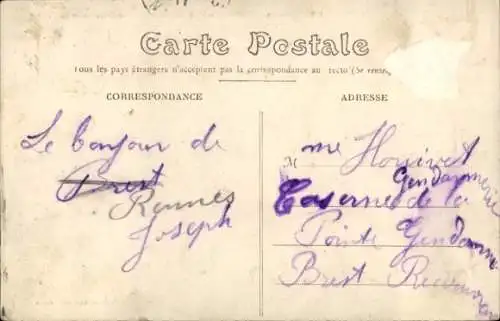 Carte Postale
Tous les pays étrangers n'acceptent pas la correspondance au recto (Se rens
CORRESPONDANCE
ADRESSE
Le bonjour de
Brest
Rennes
Joseph
M me
Gendarmerie
Caserne de la
Pointe Gendarme
Brest